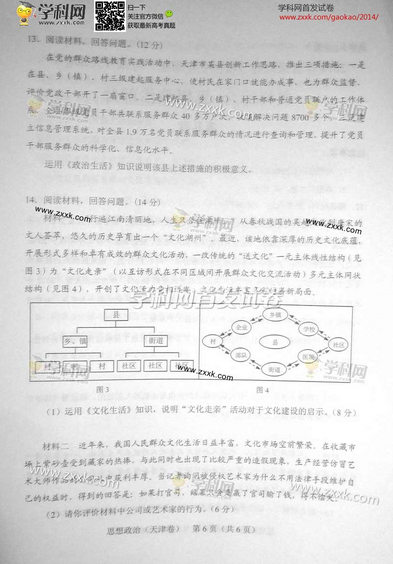 学科网
www.zxxk.com
扫一扫
关注官方微信
获取最新高考真题
学科网首发试卷
www.zxxk.com/gaokao/2014/
13. 阅读材料，回答问题。（12 分）
在党的群众路线教育实践活动中，天津市某县创新工作思路，推出三项措施：一是
在县、乡（镇）、村三级建起服务中心，使村民在家门口就能办成事，也为群众监督、
评价党政干部开了一扇窗口。二是 县、乡（镇）、村干部和普通党员联户的工作体
系，全 党员干部共联系服务群众 40 多万户次 解决问题 8700 多个。三是建
立信息管理系统，对全县 1.9 万名党员联系服务群众的情况进行查询和管理，提升了党员
干部服务群众的科学化、信息化水平。
运用《政治生活》知识说明该县上述措施的积极意义。
14. 阅读材料，回答问题。（14 分）
材料一 行遍江南清丽地，人生只合住湖州。从春秋战国的吴 到唐宋的
文人荟萃，悠久的历史孕育出一个“文化湖州”。最近，该地依靠深厚的历史文化底蕴，
开展形式多样和卓有成效的群众文化活动，一改传统的“送文化”一元主体线性结构（见
图 3）为“文化走亲”（以互访形式在不同区域间开展群众文化交流活动）多元主体网状
结构（见图 4），开创了文化 新局面。
学科网首发试卷
县
乡、镇
街道
村
村
社区
社区
图 3
乡镇
企业
学校
村
县
社区
部队
医院
街道
图 4
（1）运用《文化生活》知识，说明“文化走亲”活动对于文化建设的启示。（8 分）
材料二 近年来，我国人民群众文化生活日益丰富，文化市场空前繁荣，在收藏市
场上紫砂壶受到藏家的热捧，与此同时也出现了比较严重的造假现象，生产经营仿冒艺
术大师作品的公司从中获利丰厚。当记者问及被侵权艺术家为什么不用法律手段维护自
己的权益时，得到的回答是：如果打官司， 是赢了官司输了钱，得不偿失。
（2）请你评价材料中公司或艺术家的行为。（6 分）
思想政治（天津卷） 第 6 页（共 6 页）